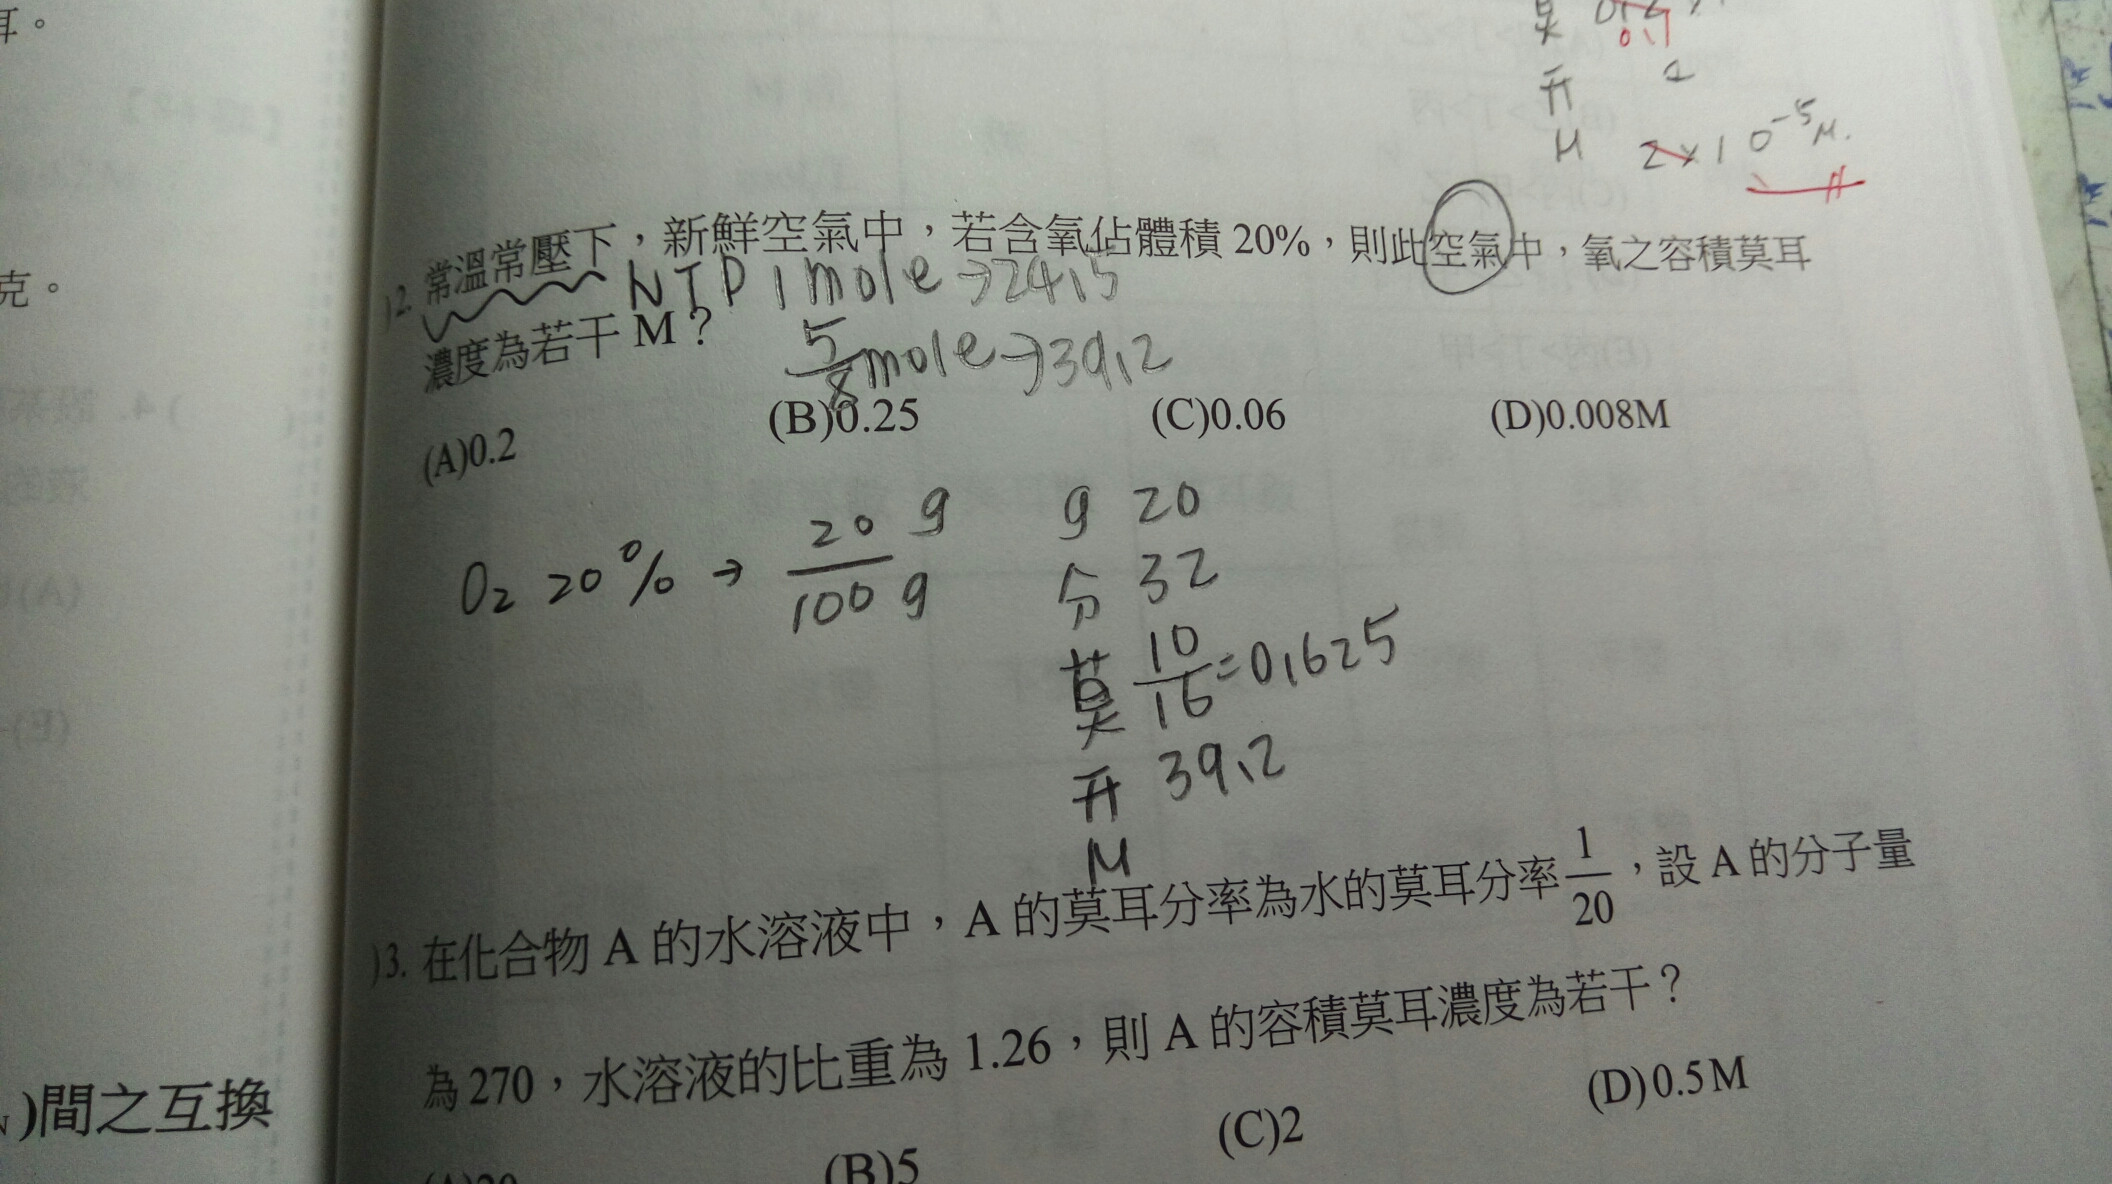 耳。
莫
0.1
升 2
M 2×10⁻⁵M.
克。
)2. 常溫常壓下，新鮮空氣中，若含氧佔體積20%，則此空氣中，氧之容積莫耳
NTP 1mole→24.5
濃度為若干M？
5/8 mole→39.2
(A)0.2 (B)0.25 (C)0.06 (D)0.008M
O₂ 20% → 20g/100g
g 20
分 32
莫 10/16=0.625
升 39.2
M
)3. 在化合物A的水溶液中，A的莫耳分率為水的莫耳分率1/20，設A的分子量
為270，水溶液的比重為1.26，則A的容積莫耳濃度為若干？
(B)5 (C)2 (D)0.5M
)間之互換